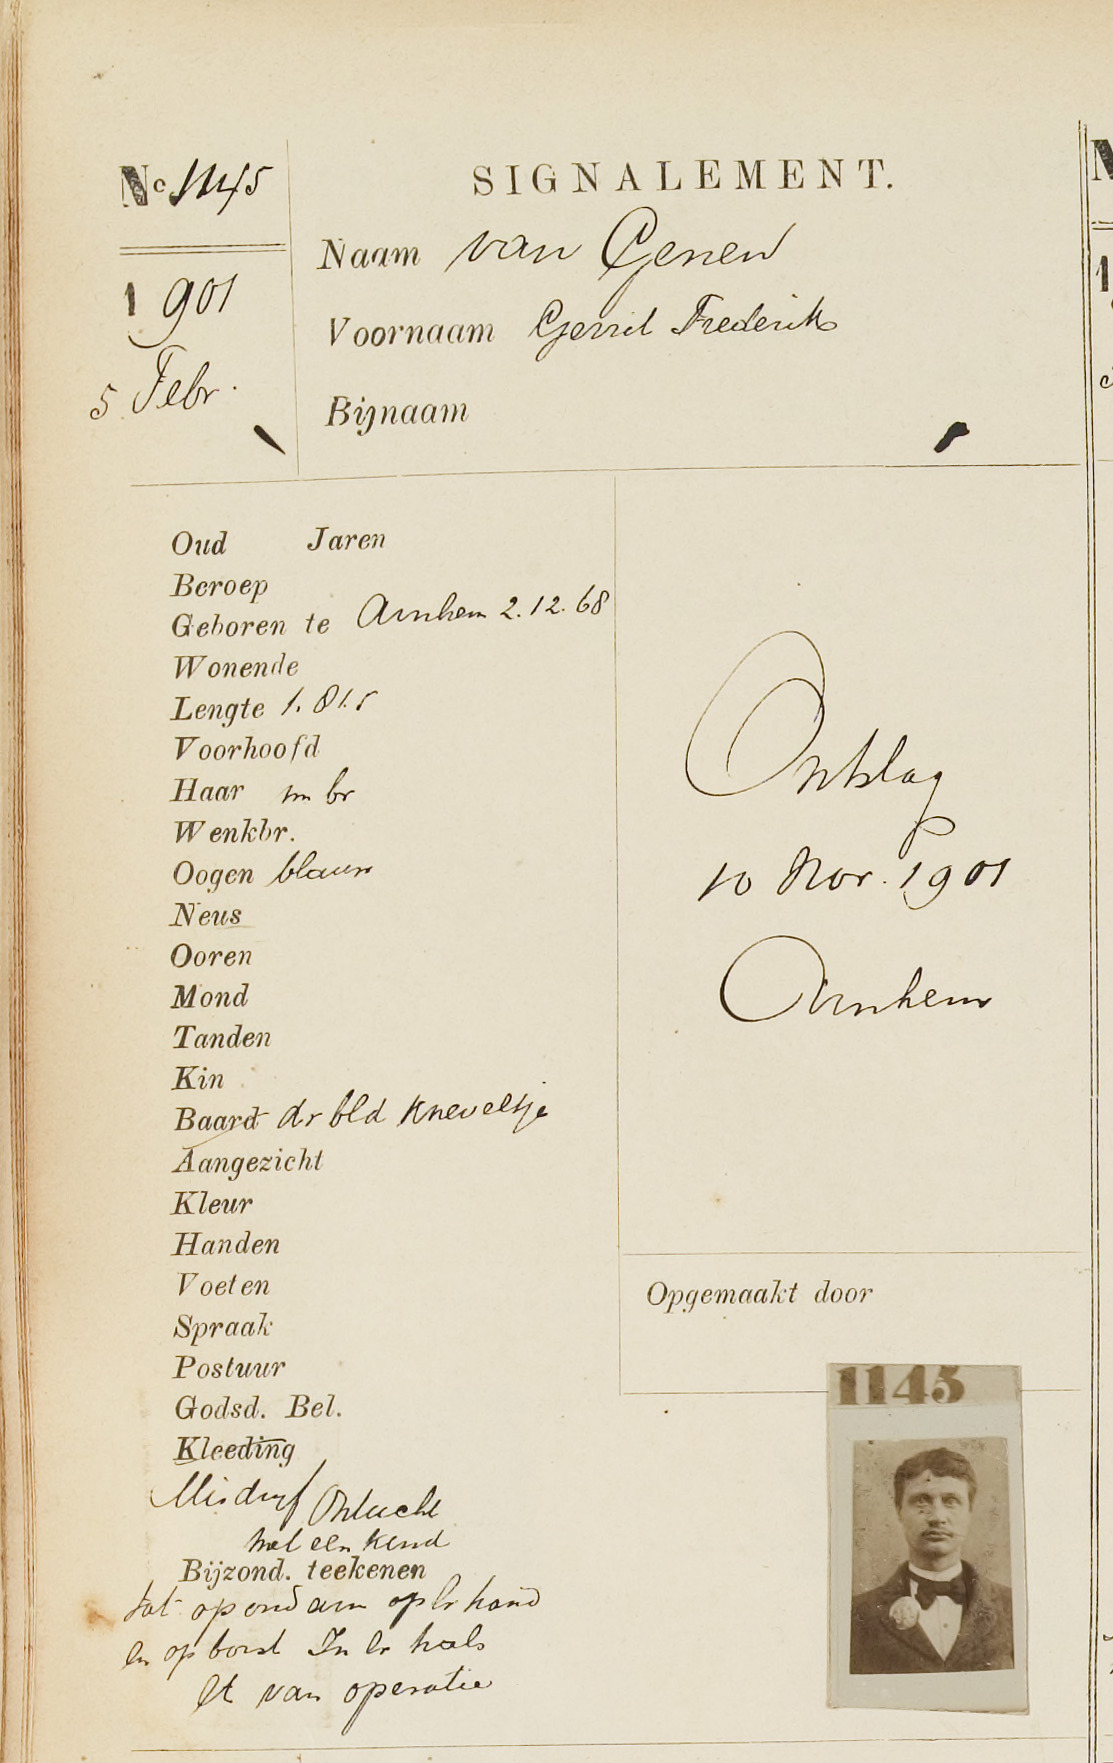 No 1145
SIGNALEMENT.
1901
5 Febr.
Naam van Genen
Voornaam Gerrit Frederik
Bijnaam
Oud Jaren
Beroep
Geboren te Arnhem 2.12.68
Wonende
Lengte 1.81.5
Voorhoofd
Haar m br
Wenkbr.
Oogen blauw
Neus
Ooren
Mond
Tanden
Kin
Baard dr bld kneveltje
Aangezicht
Kleur
Handen
Voeten
Spraak
Postuur
Godsd. Bel.
Kleeding
Misdrijf Ontucht
met een kind
Bijzond. teekenen
tat op ond arm op lr hand
en op borst In lr hals
lt van operatie
Ontslag
10 Nov. 1901
Arnhem
Opgemaakt door
1145